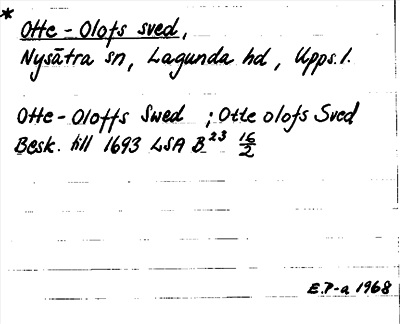 * Otte-Olofs sved,
Nysätra sn, Lagunda hd, Upps.l.
Otte-Oloffs Swed ; Otte olofs Sved
Besk. till 1693 LSA B 23 16/2
E.P-a 1968